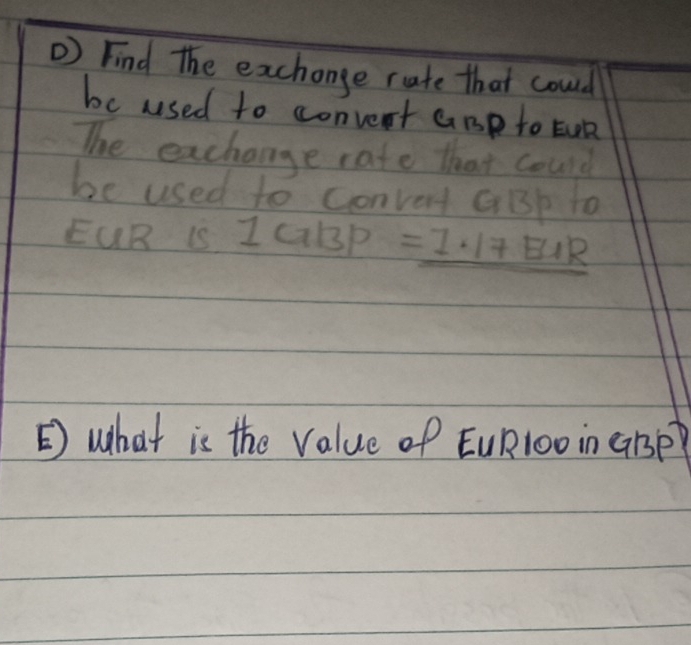 D) Find The exchange rate that could
be used to convert GBP to EUR
The exchange rate that could
be used to convert GBP to
EUR is 1 GBP = 1.17 EUR
E) what is the value of EUR100 in GBP?